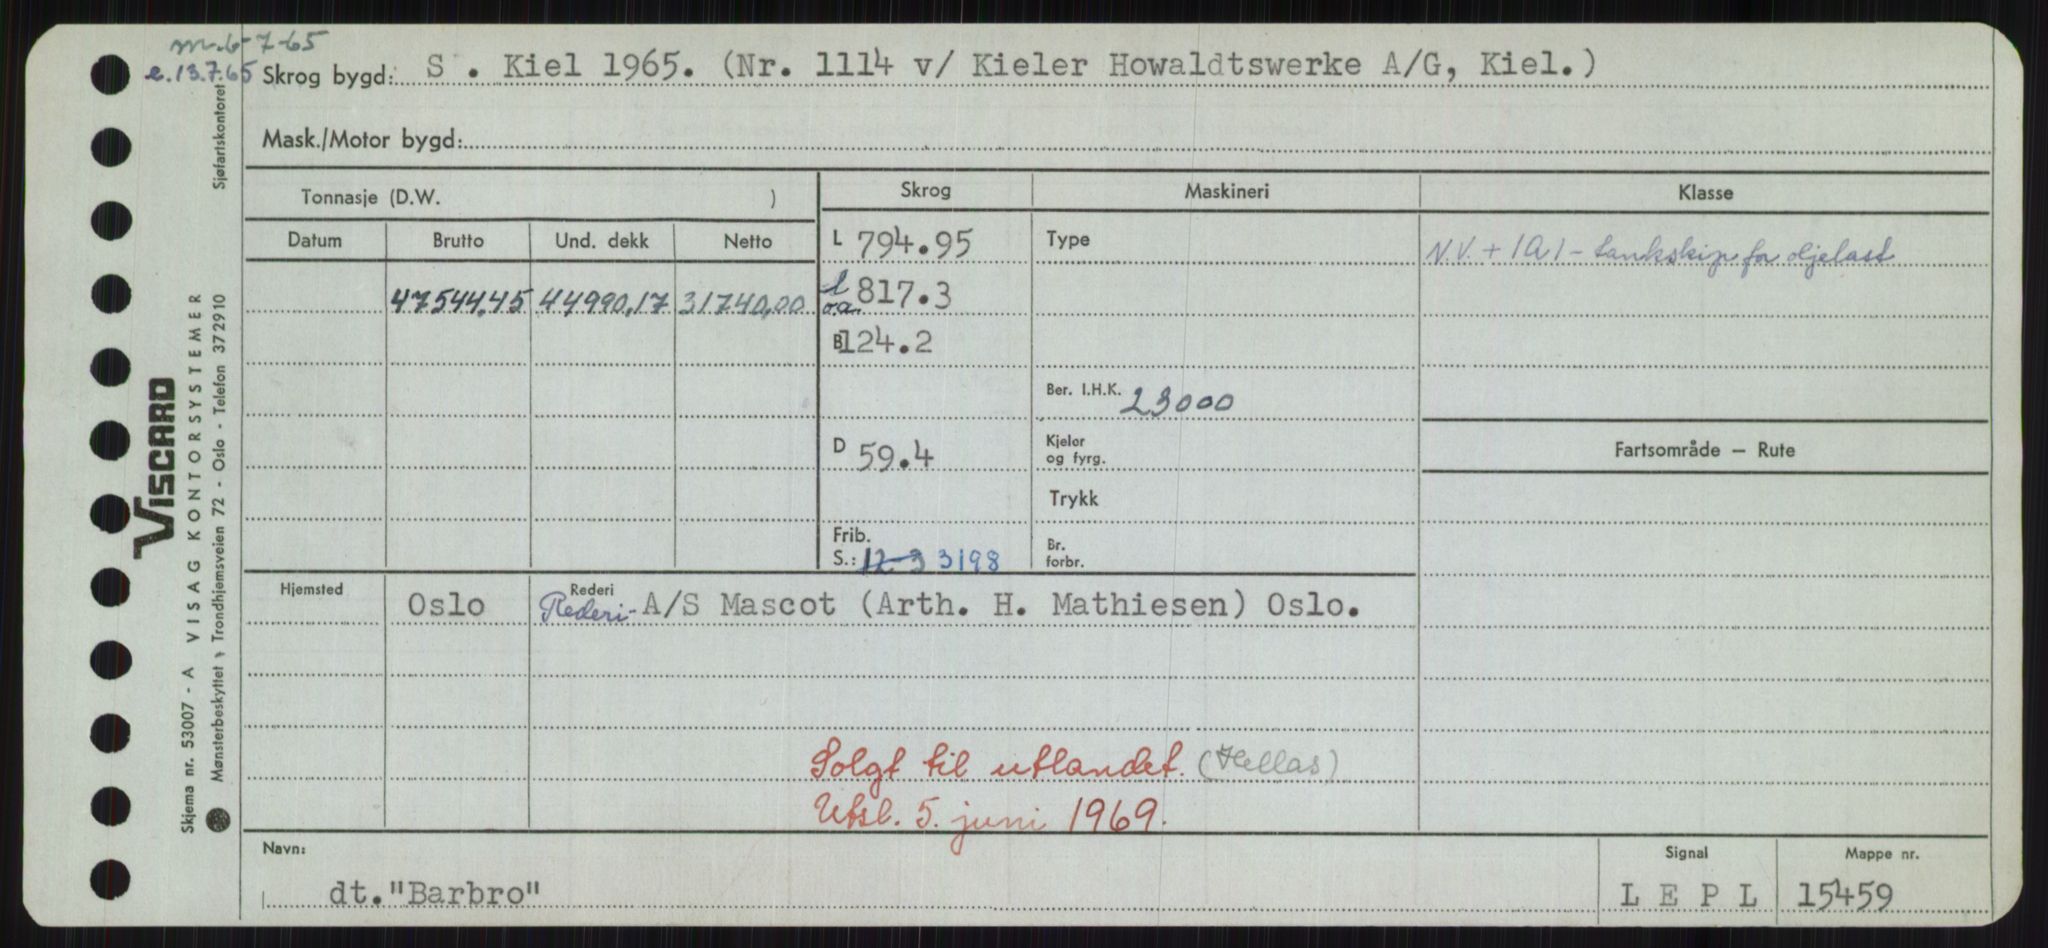 m. 6-7-65
e. 13.7.65 Skrog bygd: S . Kiel 1965. (Nr. 1114 v/ Kieler Howaldtswerke A/G, Kiel.)
Mask./Motor bygd:
Tonnasje (D.W. ) Skrog Maskineri Klasse
Datum Brutto Und. dekk Netto L 794.95 Type N.V. + 1A1 - tankskip for oljelast
47544,45 44990,17 31740,00 l o.a. 817.3
B 124.2
Ber. I.H.K. 23000
D 59.4 Kjeler og fyrg. Fartsområde – Rute
Trykk
Frib. S.: 12-3 3198 Br. forbr.
Hjemsted Oslo Rederi Rederi- A/S Mascot (Arth. H. Mathiesen) Oslo.
Solgt til utlandet. (Hellas)
Utsl. 5. juni 1969.
Navn: Signal Mappe nr.
dt."Barbro" L E P L 15459
VISCARD
Skjema nr. 53007 - A VISAG KONTORSYSTEMER
Mønsterbeskyttet Trondhjemsveien 72 - Oslo - Telefon 372910 Sjøfartskontoret